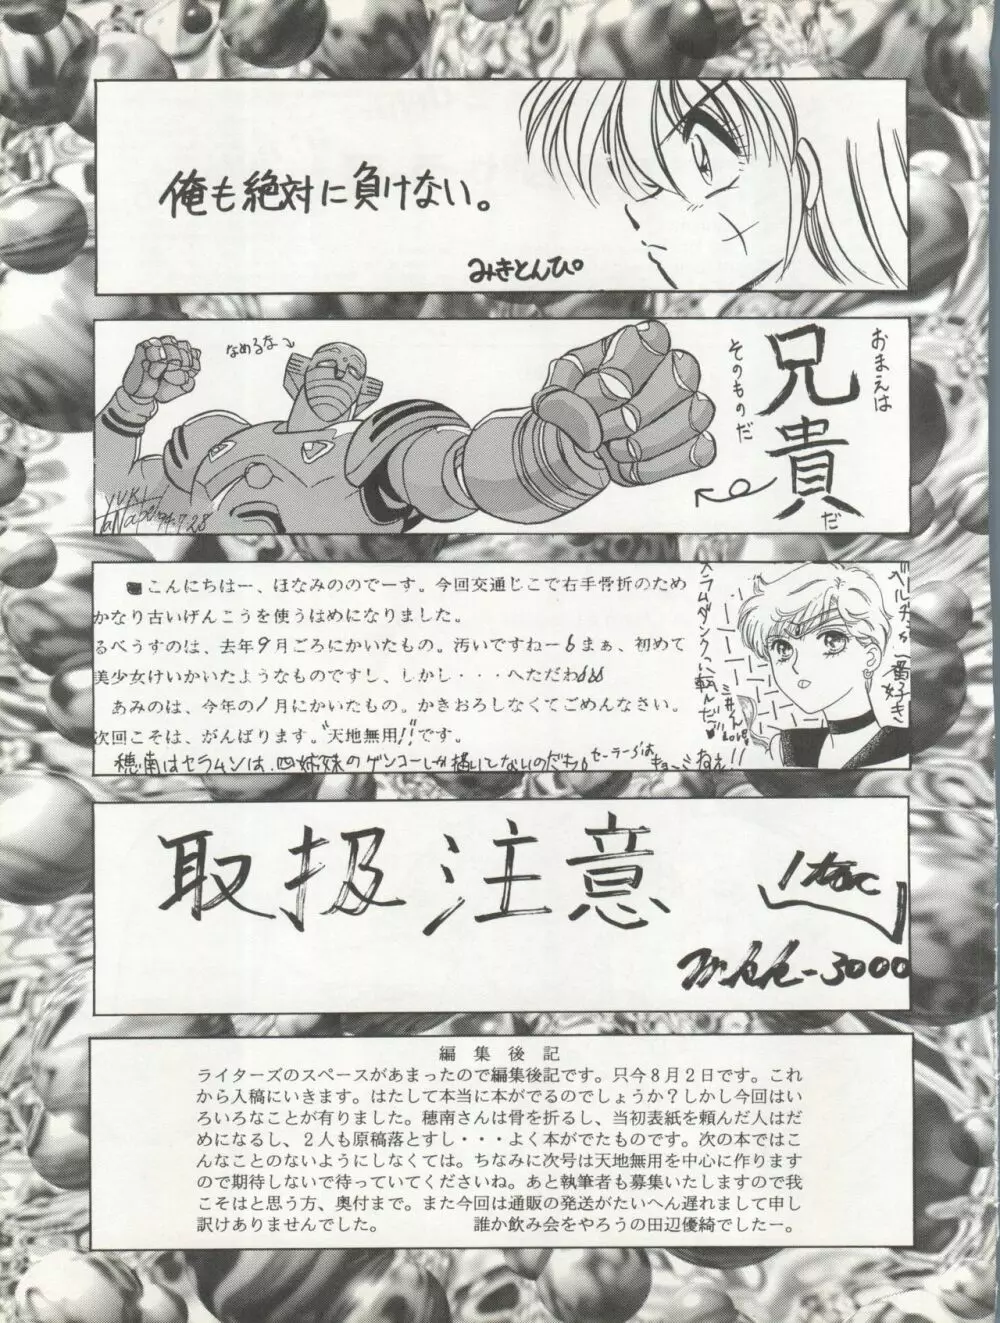 俺も絶対に負けない。
みきとんぴ。
なめるな
おまえは
兄貴
だ
そのものだ
YUKI
94.7.28
こんにちはー、ほなみののでーす。今回交通じこで右手骨折のため
かなり古いげんこうを使うはめになりました。
るべうすのは、去年9月ごろにかいたもの。汚いですねー6まぁ、初めて
美少女けいかいたようなものですし、しかし・・・へただわ
あみのは、今年の1月にかいたもの。かきおろしなくてごめんなさい。
次回こそは、がんばります。"天地無用!!"です。
穂南はセラムンは、四姉妹のゲンコーしか描いてないのだわ。
ベルチェが一番好き
スラムダンクに転んだっ
三井くん
Love
取扱注意
3000
編集後記
ライターズのスペースがあまったので編集後記です。只今8月2日です。これ
から入稿にいきます。はたして本当に本がでるのでしょうか?しかし今回はい
ろいろなことが有りました。穂南さんは骨を折るし、当初表紙を頼んだ人はだ
めになるし、2人も原稿落とすし・・・よく本がでたものです。次の本ではこ
んなことのないようにしなくては。ちなみに次号は天地無用を中心に作ります
ので期待しないで待っていてくださいね。あと執筆者も募集いたしますので我
こそはと思う方、奥付まで。また今回は通販の発送がたいへん遅れまして申し
訳けありませんでした。 誰か飲み会をやろうの田辺優綺でしたー。